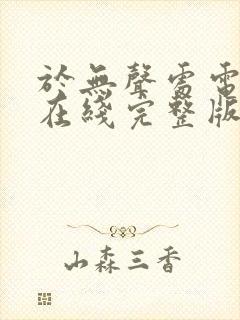 於無聲處雷電
在綫完整版
山森三香